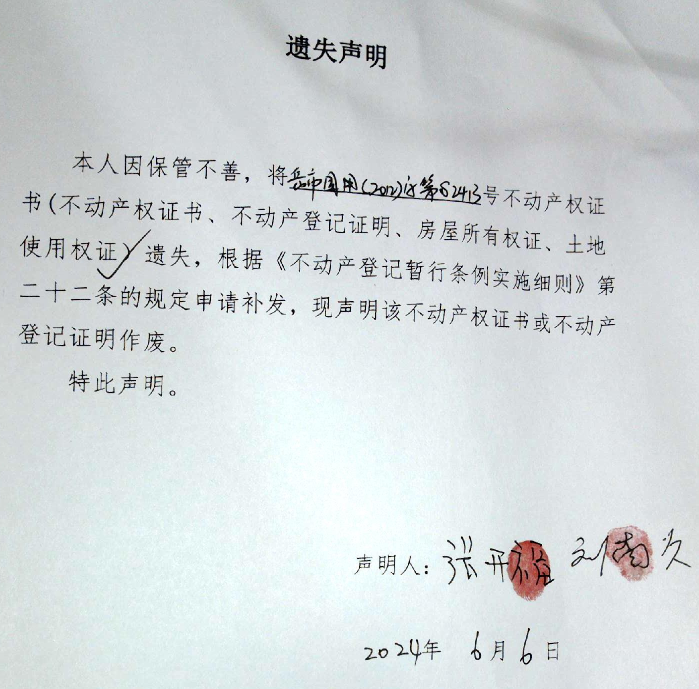 遗失声明
本人因保管不善，将岳市国用(2012)第S2413号不动产权证
书(不动产权证书、不动产登记证明、房屋所有权证、土地
使用权证)遗失，根据《不动产登记暂行条例实施细则》第
二十二条的规定申请补发，现声明该不动产权证书或不动产
登记证明作废。
特此声明。
声明人：张开 刘南
2024年 6月6日